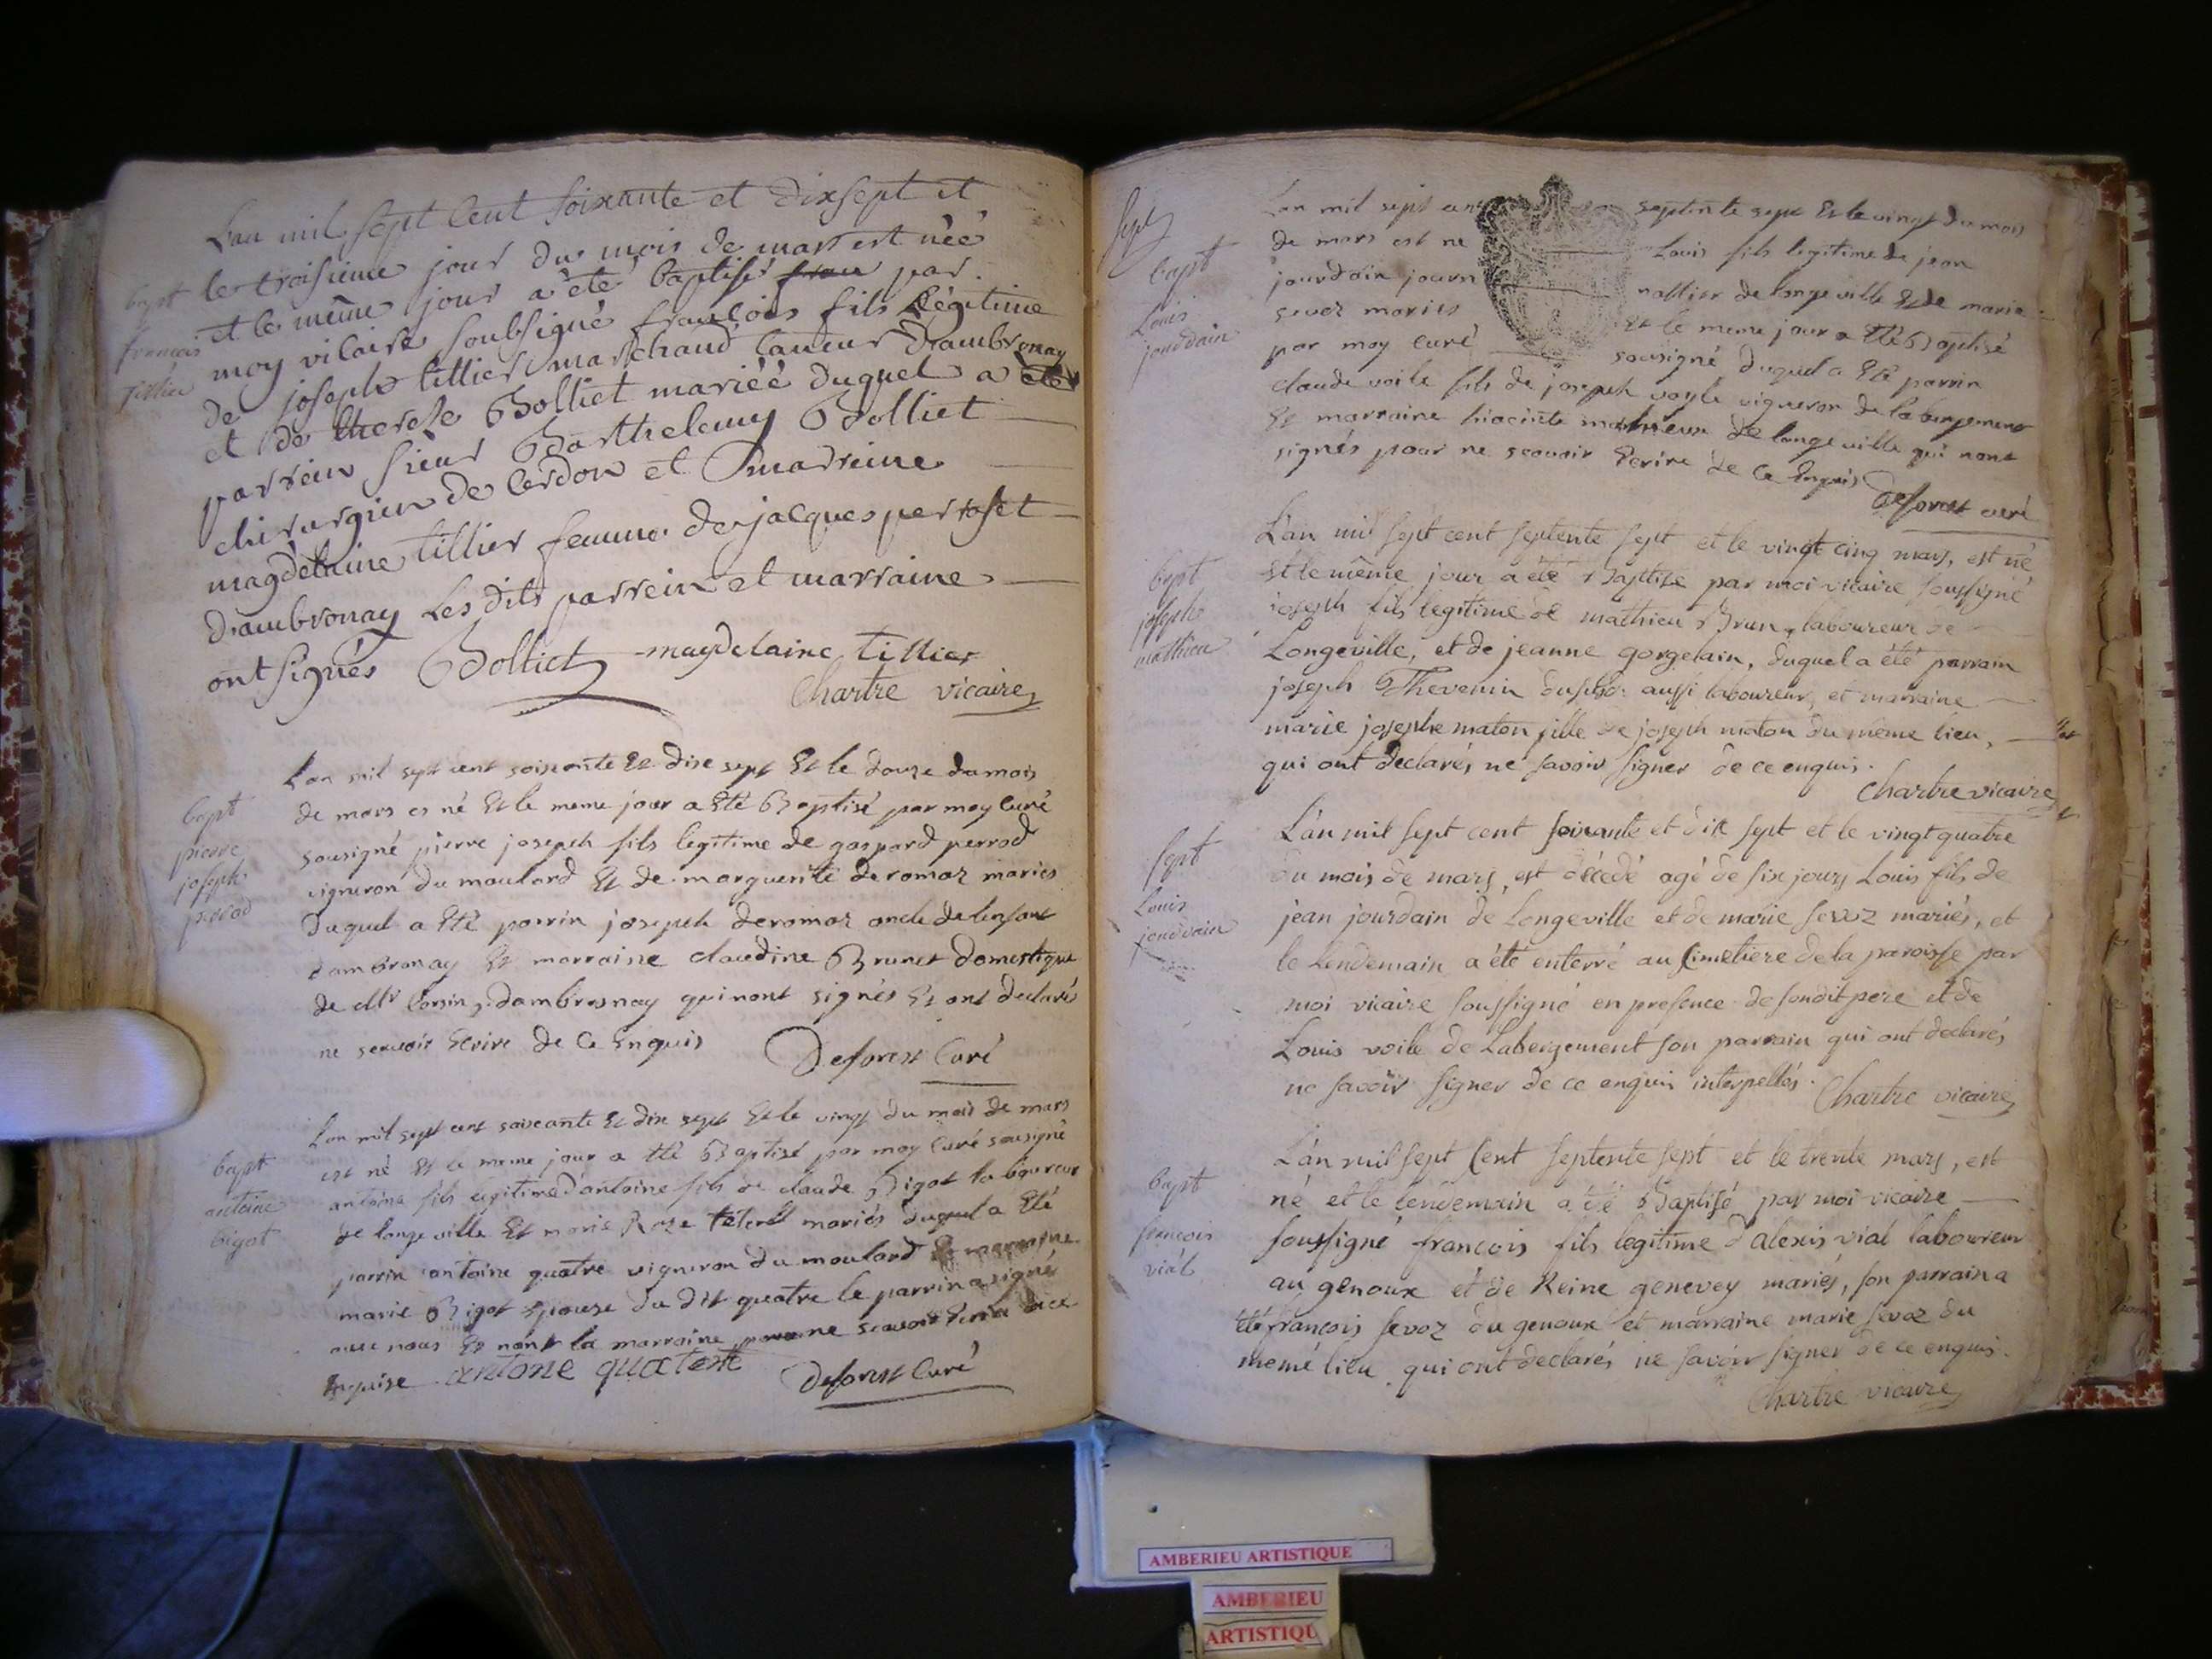 L'an mil sept cent soixante et dixsept et
le troisieme jour du mois de mars est néé
et le même jour a été baptisé fran par
moy vicaire soubsigné françois fils Légitime
de joseph tillier marchand taneur d'ambronay
et de therese Bolliet mariéé duquel a été
parrein sieur Barthelemy Bolliet
chirurgien de Cerdon et marreine
magdelaine tillier femme de jacques perroset
d'ambronay Les dits parrein et marraine
ont signés Bolliet magdelaine tillier
Chartre vicaire
bapt
francois
tillier
L'an mil sept cent soixante Et dixe sept Et le douze du mois
de mars es né Et le meme jour a Eté Baptisé par moy Curé
sousigné pierre joseph fils legitime de gaspard perrod
vigneron du moulard Et de marguerite deromaz mariés
Duquel a Eté parrin joseph deromaz oncle de lenfant
dambronay Et marraine claudine Brunet domestique
de Mr Corsin dambrosnay qui nont signés Et ont declarés
ne scavoir Ecrire de Ce Enquis Deforest Curé
bapt
pierre
joseph
perrod
L'an mil sept cent soixante Et dix sept Et le vingt du mois de mars
est né Et le meme jour a Eté Baptisé par moy Curé sousigné
antoine fils legitime d'antoine fils de claude Bigot laboureur
de longeville Et marie Roze mariés duquel a Eté
parrin antoine quatre vigneron du moulard Et marraine
marie Bigot Epouse du dit quatre le parrin a signé
avec nous Et nont la marraine pour ne scavoir Ecrire de ce
Enquise antoine quatere Deforest Curé
bapt
antoine
bigot
sept
L'an mil sept cent septente sept Et le vingt du mois
de mars est ne Louis fils legitime de jean
jourdain journallier de longeville Et de marie
sevoz mariés Et le meme jour a Eté Baptisé
par moy Curé sousigné Duquel a Eté parrin
claude voile fils de joseph voyle vigneron de labergement
Et marraine hiacinte mathieux de longeville qui nont
signés pour ne scavoir Ecrire de Ce Enquis
Deforest curé
bapt
Louis
jourdain
L'an mil sept cent septente sept et le vingt cinq mars, est né
et le même jour a été Baptise par moi vicaire soussigné
joseph fils legitime de mathieu Brun, laboureur de
Longeville, et de jeanne gorgelain, duquel a été parrain
joseph Thevenin aussi laboureur, et marraine
marie josephe maton fille de joseph maton du même lieu,
qui ont declarés ne savoir signer de ce enquis.
Chartre vicaire
bapt
joseph
mathieu
L'an mil sept cent soixante et dix sept et le vingt quatre
du mois de mars, est décédé agé de six jours Louis fils de
jean jourdain de Longeville et de marie sevoz mariés, et
le Lendemain a été enterré au Cimetiere de la paroisse par
moi vicaire soussigné en presence de sondit pere et de
Louis voile de Labergement son parrain qui ont declarés
ne savoir signer de ce enquis interpellés. Chartre vicaire
sept
Louis
jourdain
L'an mil sept Cent septente sept et le trente mars, est
né et le lendemain a été Baptisé par moi vicaire
soussigné francois fils legitime d'alexis vial laboureur
au genoux et de Reine genevey mariés, son parrain a
été françois sevoz du genoux et marraine marie sevoz du
même lieu qui ont declarés ne savoir signer de ce enquis.
Chartre vicaire
bapt
francois
vial
AMBERIEU ARTISTIQUE
AMBERIEU
ARTISTIQU